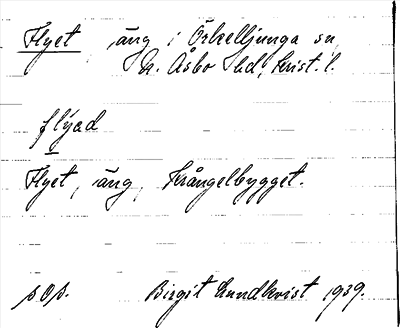 Flyet, äng i Örkelljunga sn,
N. Åsbo hd, Krist. l.
flýad
Flyet, äng, Krångelbygget.
s. o. s.
Birgit Lundkvist 1939.